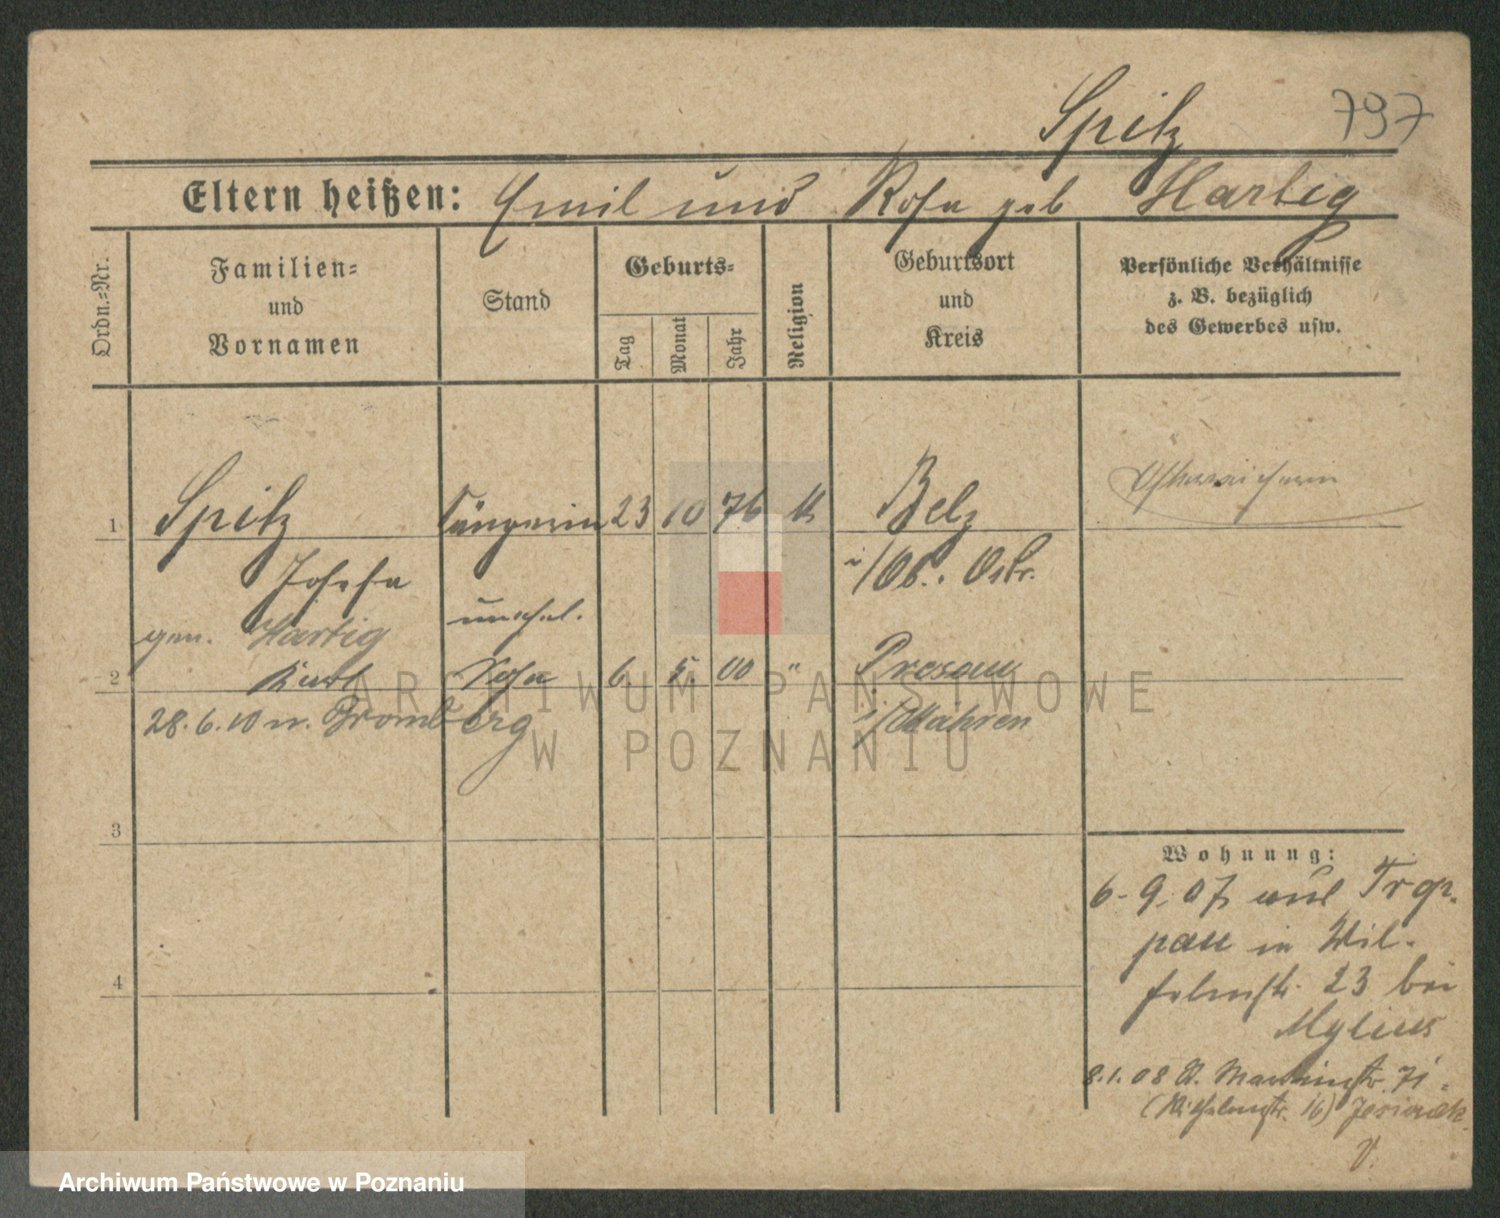 Spitz 797
Eltern heißen: Emil und Rosa geb Hartig
Ordn.=Nr.
Familien=
und
Vornamen
Stand
Geburts=
Tag
Monat
Jahr
Religion
Geburtsort
und
Kreis
Persönliche Verhältnisse
z. B. bezüglich
des Gewerbes usw.
1 Spitz Sängerin 23 10 76 k Belz
Josefa
i/Ob. Ostr.
gen. Hartig unehel.
2 Kurt Sohn 6. 5. 00 " Prosau
28.6.10 n. Bromberg
i/Mähren
3
4
Wohnung:
6. 9. 07 aus Trop-
pau in Wil-
helmstr. 23 bei
Mylius
8.1.08 St. Martinstr. 71
(Wilhelmstr. 16) Jesiorek
V.
ARCHIWUM PAŃSTWOWE
W POZNANIU
Archiwum Państwowe w Poznaniu